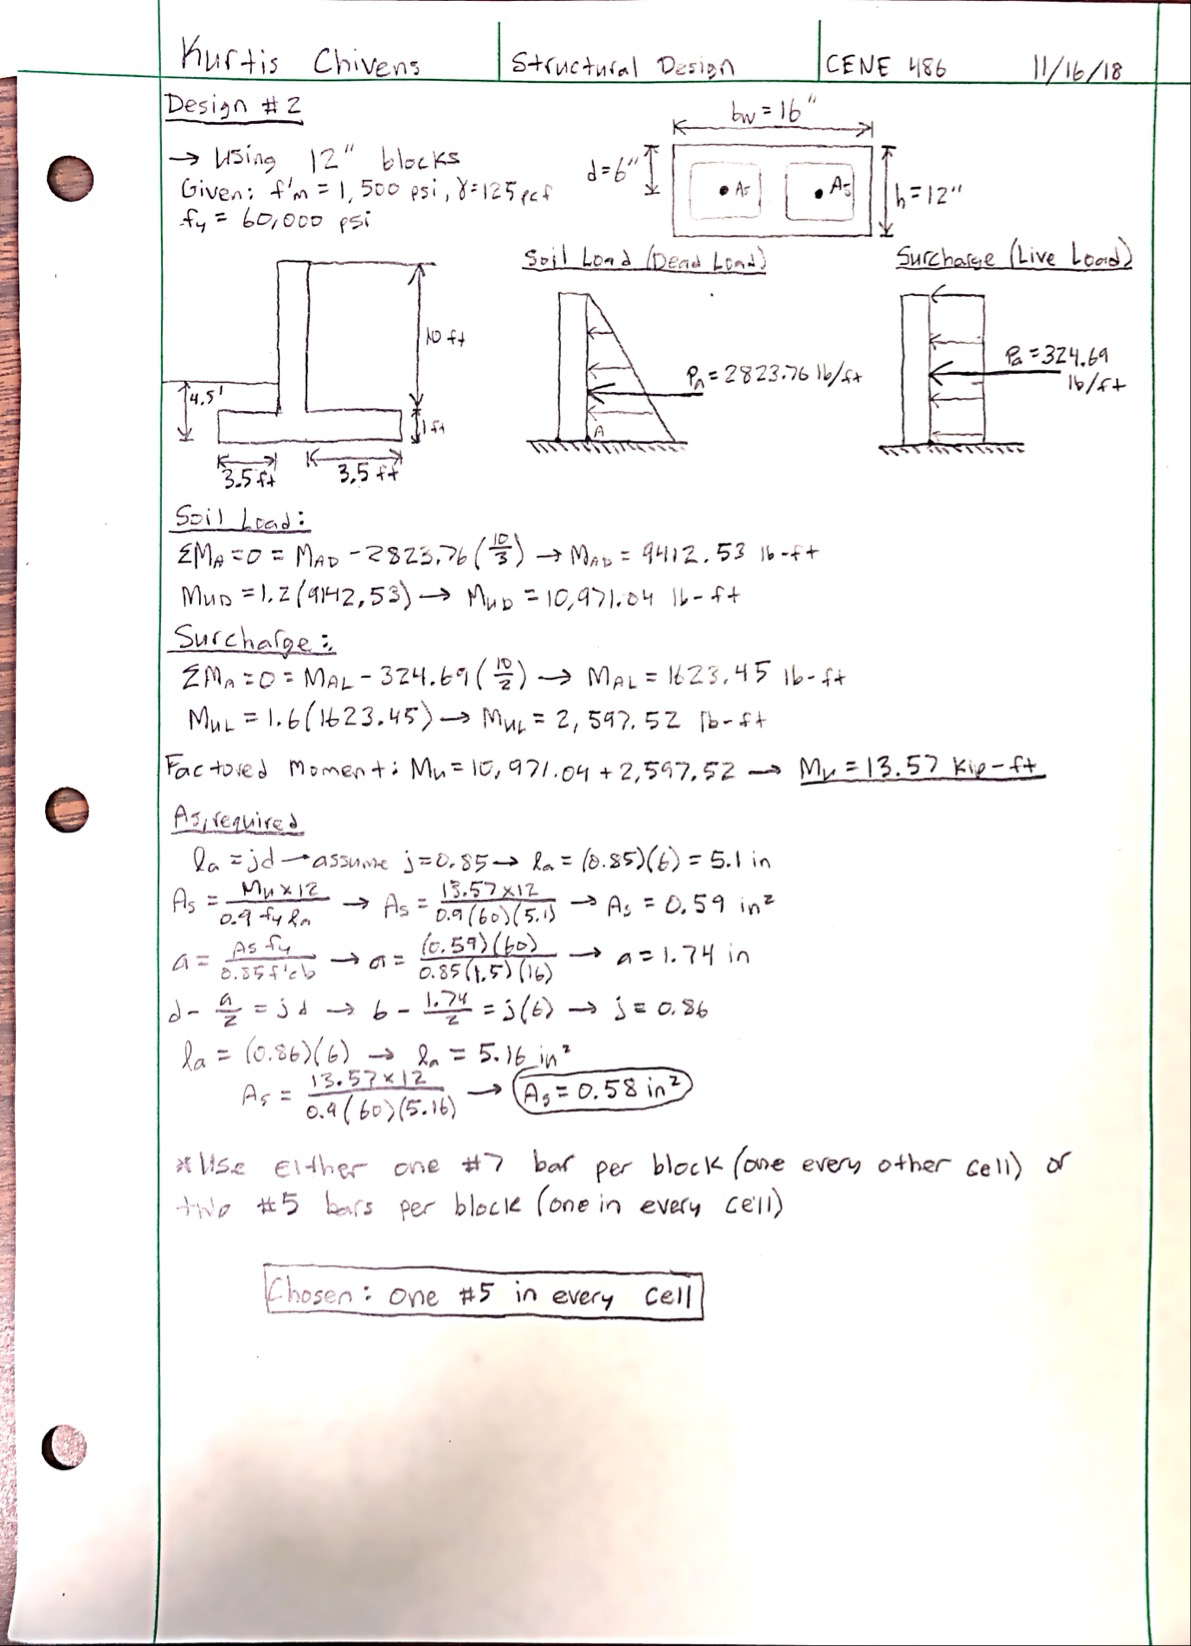 Kurtis Chivens
Structural Design
CENE 486
11/16/18
Design #2
→ Using 12" blocks
Given: f'm = 1,500 psi, γ=125 pcf
fy = 60,000 psi
bw = 16"
d=6"
As
As
h=12"
10 ft
4.5'
1 ft
3.5 ft
3.5 ft
Soil Load (Dead Load)
Pa = 2823.76 lb/ft
A
Surcharge (Live Load)
Pa = 324.69
lb/ft
Soil Load:
ΣMA=0 = MAD - 2823.76 (10/3) → MAD = 9412.53 lb-ft
MUD = 1.2(9142.53) → MUD = 10,971.04 lb-ft
Surcharge:
ΣMA=0 = MAL - 324.69 (10/2) → MAL = 1623.45 lb-ft
MUL = 1.6(1623.45) → MUL = 2,597.52 lb-ft
Factored Moment: Mu = 10,971.04 + 2,597.52 → Mu = 13.57 kip-ft
As,required
la = jd → assume j=0.85 → la = (0.85)(6) = 5.1 in
As = Mu×12 / 0.9 fy la → As = 13.57×12 / 0.9(60)(5.1) → As = 0.59 in²
a = As fy / 0.85 f'c b → a = (0.59)(60) / 0.85(1.5)(16) → a = 1.74 in
d - a/2 = jd → 6 - 1.74/2 = j(6) → j = 0.86
la = (0.86)(6) → la = 5.16 in²
As = 13.57×12 / 0.9(60)(5.16) → As = 0.58 in²
*Use either one #7 bar per block (one every other cell) or
two #5 bars per block (one in every cell)
Chosen: one #5 in every cell